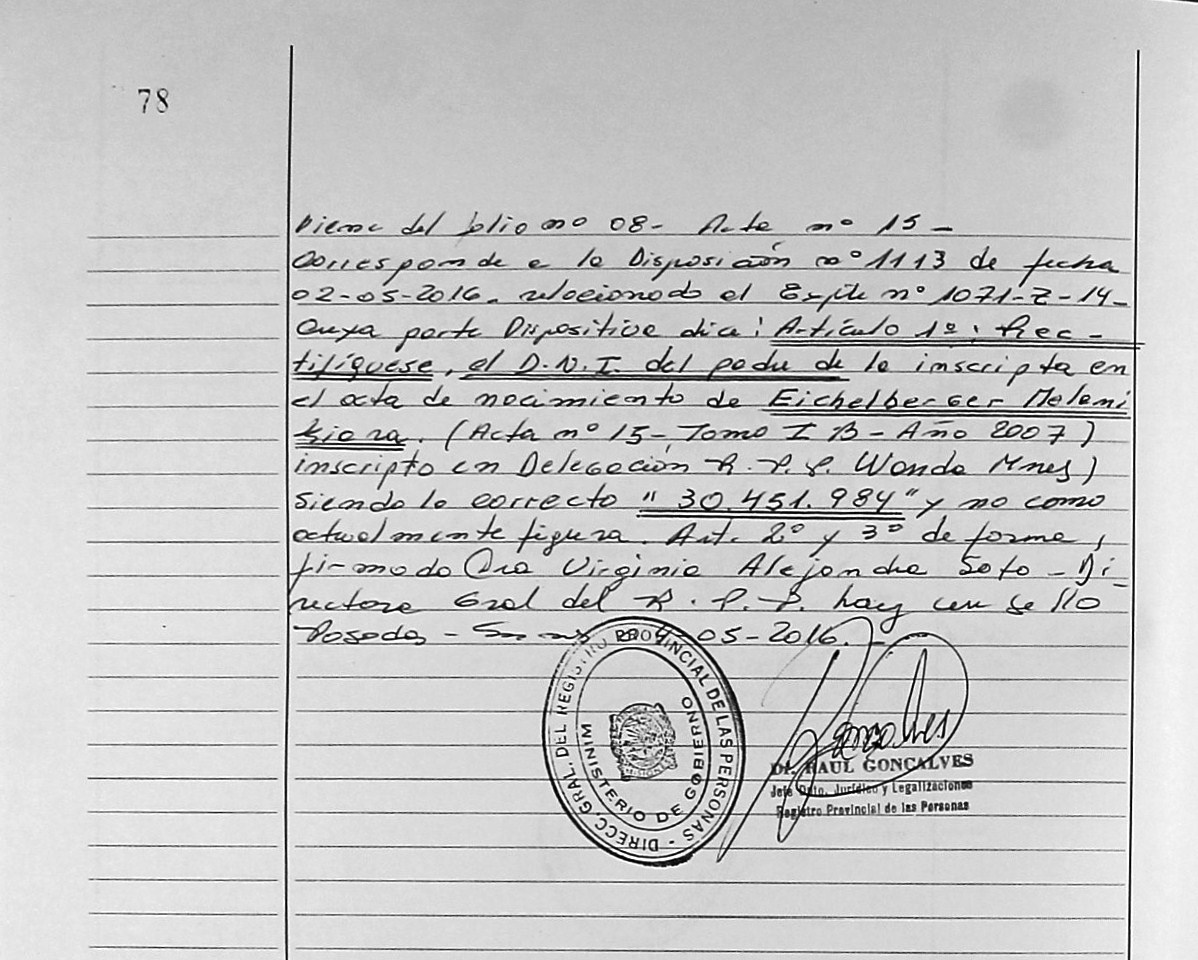 78
Viene del folio nº 08- Acta nº 15-
Corresponde a la Disposición nº 1113 de fecha
02-05-2016. relacionado el Expte nº 1071-Z-14-
Cuya parte Dispositiva dice: Artículo 1º: Rec-
tifíquese, el D.N.I. del padre de la inscripta en
el acta de nacimiento de Eichelberger Melani
(Acta nº 15- Tomo I B- Año 2007)
inscripto en Delegación R.P.P. Wanda Mnes)
siendo lo correcto "30.451.984" y no como
actualmente figura. Art. 2º y 3º de forma,
firmado Dra Virginia Alejandra Soto - Di-
rectora Gral del R.P.P. hay un sello
Posadas - 05-2016.-
DIRECC. GRAL. DEL REGISTRO PROVINCIAL DE LAS PERSONAS -
MINISTERIO DE GOBIERNO
MISIONES
Goncalves
Dr. RAUL GONCALVES
Jefe Dpto. Jurídico y Legalizaciones
Registro Provincial de las Personas